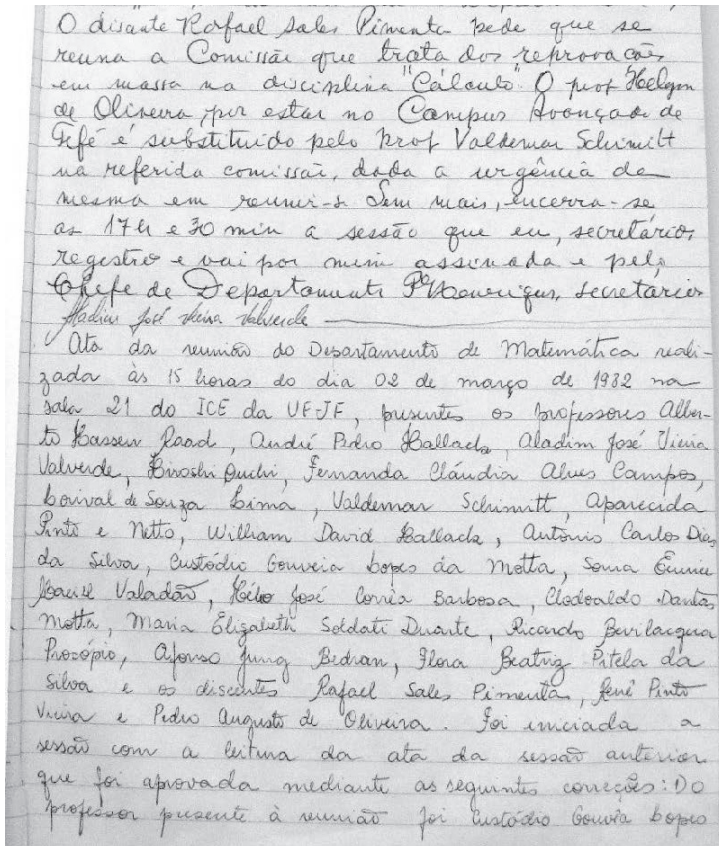 O disante Rafael Sales Pimenta pede que se
reuna a Comissão que trata dos reprovações
em massa na disciplina "Cálculo". O prof Helyon
de Oliveira, por estar no Campus Avançado de
Tefé é substituído pelo Prof Valdemar Schimitt
na referida comissão, dada a urgência da
mesma em reunir-se Sem mais, encerra-se
as 17h e 30 min a sessão que eu, secretário,
registro e vai por mim assinada e pelo
Chefe de Departamento secretário
Aladim José Vieira Valverde
Ata da reunião do Departamento de Matemática reali-
zada às 15 horas do dia 02 de março de 1982 na
sala 21 do ICE da UFJF, presentes os professores Alber-
to Hassen Raad, André Pedro Hallack, Aladim José Vieira
Valverde, Hiroshi Fernanda Cláudia Alves Campos,
Lorival de Souza Lima, Valdemar Schimitt, Aparecida
Pinto e Netto, William David Hallack, Antônio Carlos Dias
da Silva, Custódio Gouveia Lopes da Motta, Sonia Eunice
Valadão, Hélio José Corrêa Barbosa, Clodoaldo Dantas
Motta, Maria Elizabeth Soldati Duarte, Ricardo Bevilacqua
Procópio, Afonso Jung Bedran, Flora Beatriz Pitela da
Silva e os discentes Rafael Sales Pimenta, René Pinto
Vieira e Pedro Augusto de Oliveira. Foi iniciada a
sessão com a leitura da ata da sessão anterior
que foi aprovada mediante as seguintes correções: Do
professor presente à reunião foi Custódio Gouvêa Lopes